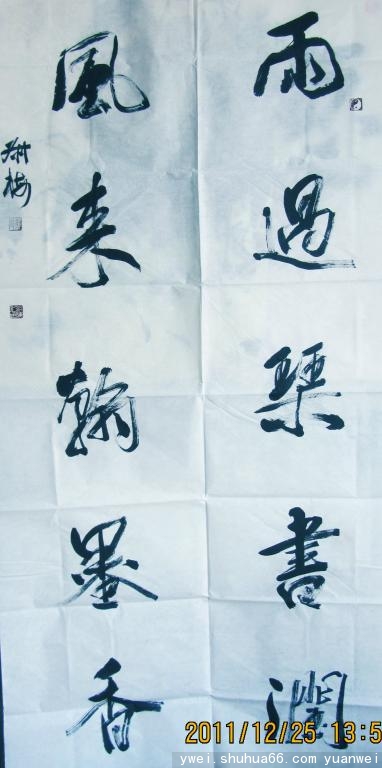 雨過琴書潤
風来翰墨香
2011/12/25 13:5
ywei.shuhua66.com yuanwei